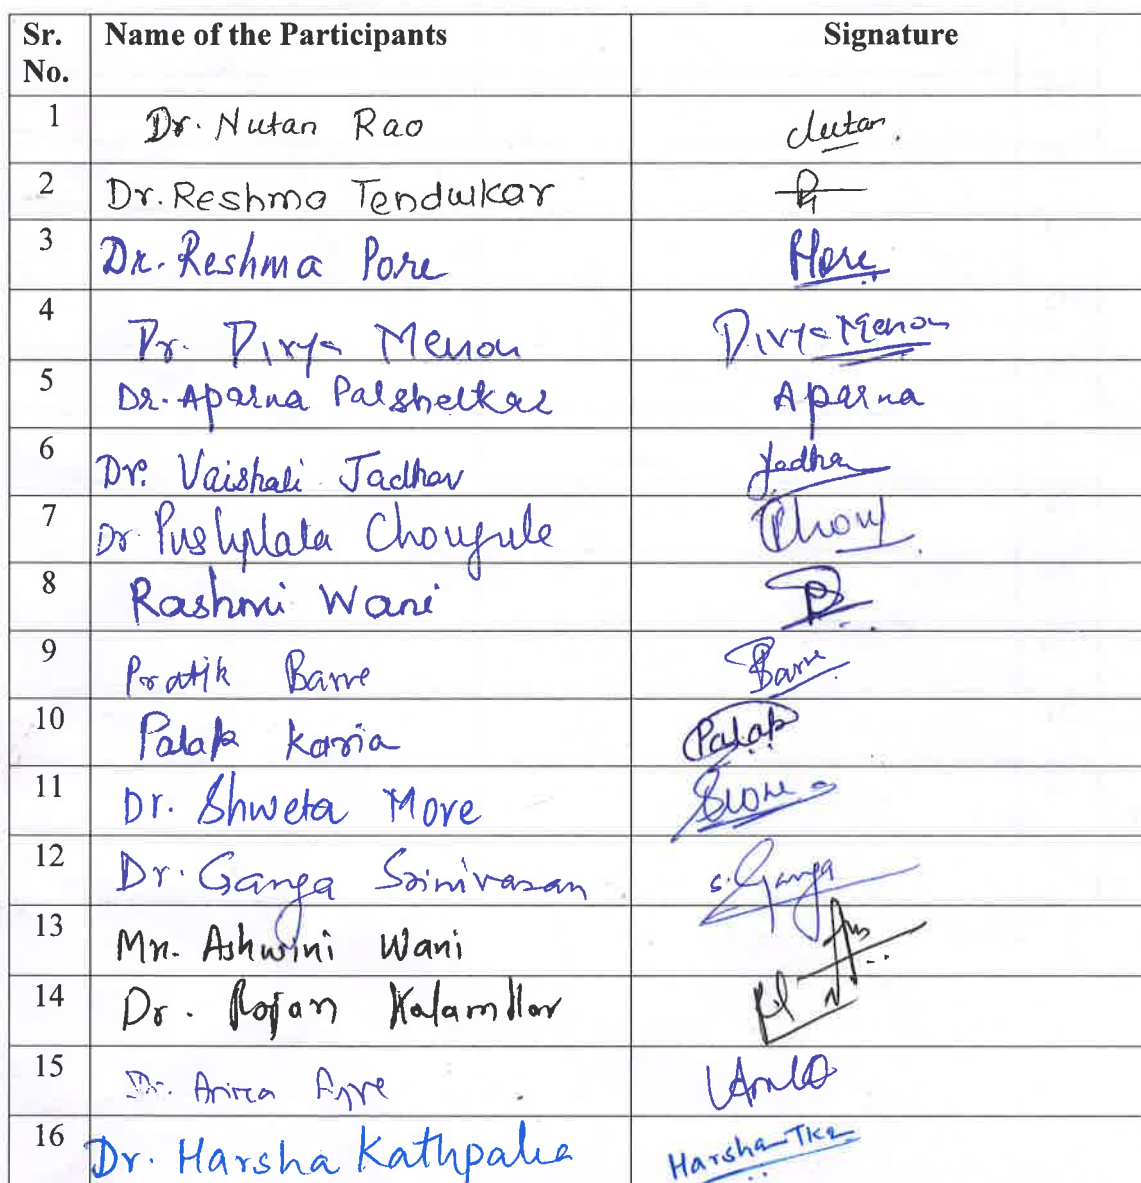 Sr. No. Name of the Participants Signature
1 Dr. Nutan Rao Nutan
2 Dr. Reshma Tendulkar
3 Dr. Reshma Pore Pore
4 Dr. Divya Menon Divya Menon
5 Dr. Aparna Palshetkar Aparna
6 Dr. Vaishali Jadhav Jadhav
7 Dr Pushplata Chougule Chou
8 Rashmi Wani
9 Pratik Barve Barve
10 Palak Karia Palak
11 Dr. Shweta More
12 Dr. Ganga Srinivasan S. Ganga
13 Ashwini Wani
14 Dr. Rajan Kalamkar
15 Dr.
16 Dr. Harsha Kathpalia Harsha